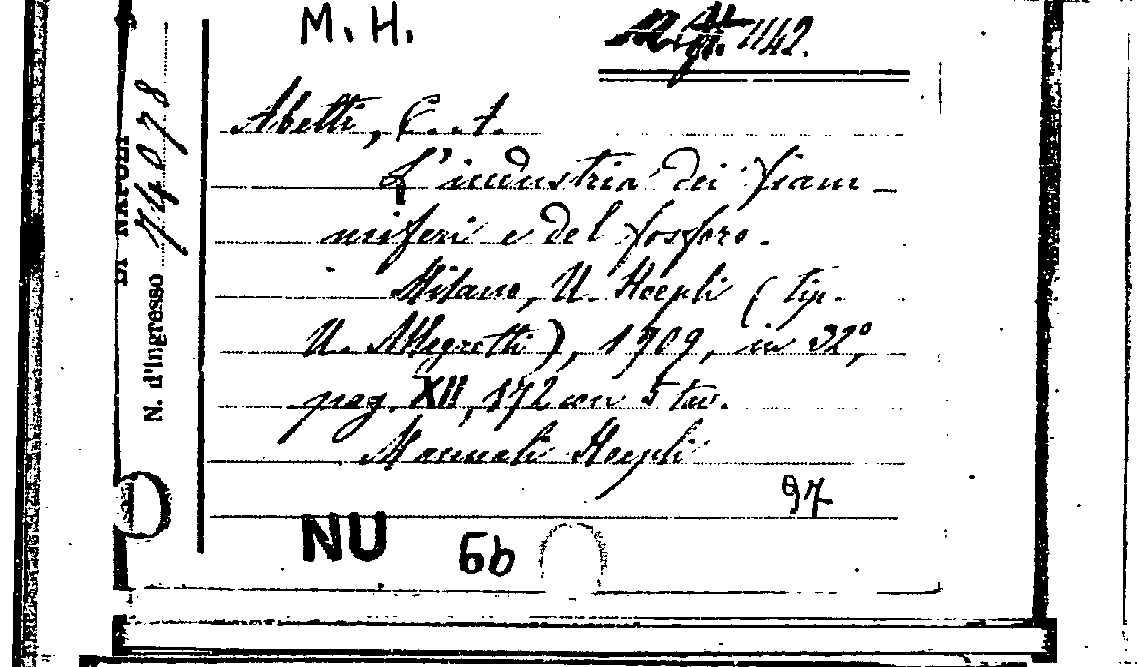 M. H.
1142.
Abetti, C. A.
L'industria dei fiam-
miferi e del fosforo.
Milano, U. Hoepli (tip.
U. Allegretti), 1909, in 32°,
pag. XII, 172 con 5 tav.
Manuali Hoepli
97
NU 6b
DI NAPOLI
N. d'Ingresso 74078